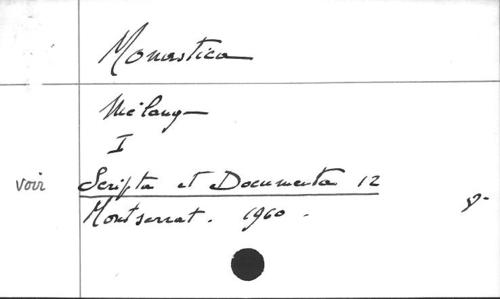 Monastica
Mélang
I
voir Scripta et Documenta 12
Montserrat. 1960.